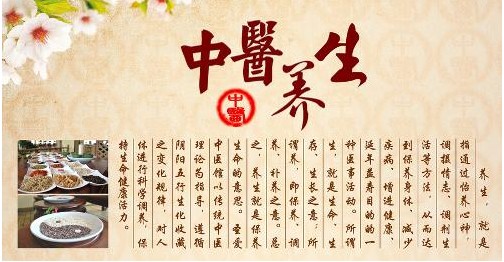 中醫养生
中醫
养生,就是
指通过怡养心神,
调摄情志、调剂生
活等方法,从而达
到保养身体、减少
疾病、增进健康、
延年益寿目的的一
种医事活动。所谓
生,就是生命、生
存、生长之意;所
谓养,即保养、调
养、补养之意。总
之,养生就是保养
生命的意思。圣爱
中医馆以传统中医
理论为指导,遵循
阴阳五行生化收藏
之变化规律,对人
体进行科学调养,保
持生命健康活力。